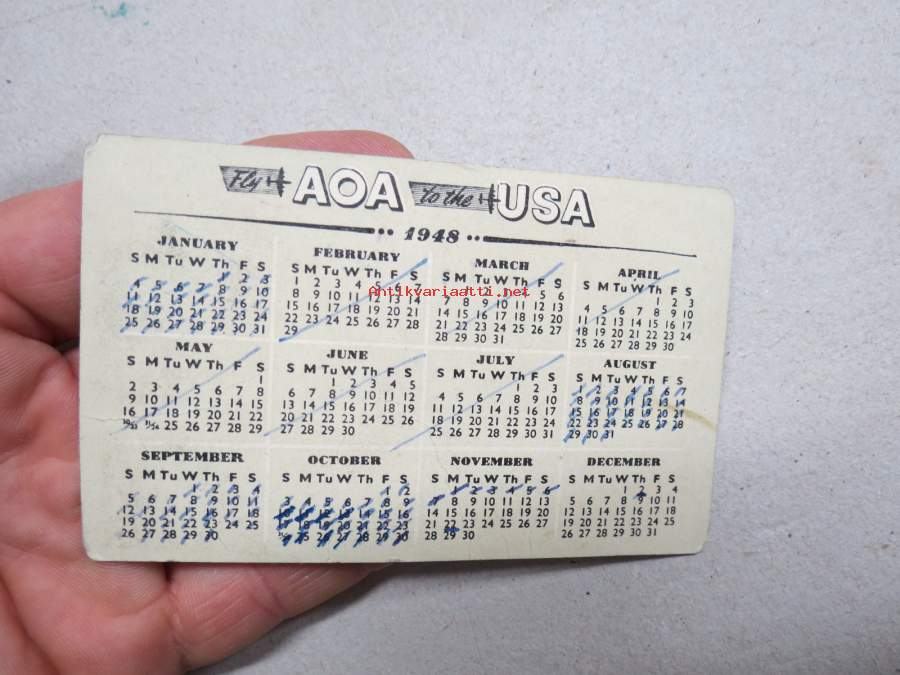 Fly AOA to the USA
1948
JANUARY
S M Tu W Th F S
1 2 3
4 5 6 7 8 9 10
11 12 13 14 15 16 17
18 19 20 21 22 23 24
25 26 27 28 29 30 31
FEBRUARY
S M Tu W Th F S
1 2 3 4 5 6 7
8 9 10 11 12 13 14
15 16 17 18 19 20 21
22 23 24 25 26 27 28
29
MARCH
S M Tu W Th F S
1 2 3 4 5 6
7 8 9 10 11 12 13
14 15 16 17 18 19 20
21 22 23 24 25 26 27
28 29 30 31
APRIL
S M Tu W Th F S
1 2 3
4 5 6 7 8 9 10
11 12 13 14 15 16 17
18 19 20 21 22 23 24
25 26 27 28 29 30
MAY
S M Tu W Th F S
1
2 3 4 5 6 7 8
9 10 11 12 13 14 15
16 17 18 19 20 21 22
23/30 24/31 25 26 27 28 29
JUNE
S M Tu W Th F S
1 2 3 4 5
6 7 8 9 10 11 12
13 14 15 16 17 18 19
20 21 22 23 24 25 26
27 28 29 30
JULY
S M Tu W Th F S
1 2 3
4 5 6 7 8 9 10
11 12 13 14 15 16 17
18 19 20 21 22 23 24
25 26 27 28 29 30 31
AUGUST
S M Tu W Th F S
1 2 3 4 5 6 7
8 9 10 11 12 13 14
15 16 17 18 19 20 21
22 23 24 25 26 27 28
29 30 31
SEPTEMBER
S M Tu W Th F S
1 2 3 4
5 6 7 8 9 10 11
12 13 14 15 16 17 18
19 20 21 22 23 24 25
26 27 28 29 30
OCTOBER
S M Tu W Th F S
1 2
3 4 5 6 7 8 9
10 11 12 13 14 15 16
17 18 19 20 21 22 23
25 26 27 28 29 30
NOVEMBER
S M Tu W Th F S
1 2 3 4 5 6
7 8 9 10 11 12 13
14 15 16 17 18 19 20
21 22 23 24 25 26 27
28 29 30
DECEMBER
S M Tu W Th F S
1 2 3 4
5 6 7 8 9 10 11
12 13 14 15 16 17 18
19 20 21 22 23 24 25
26 27 28 29 30 31
Antikvariaatti.net